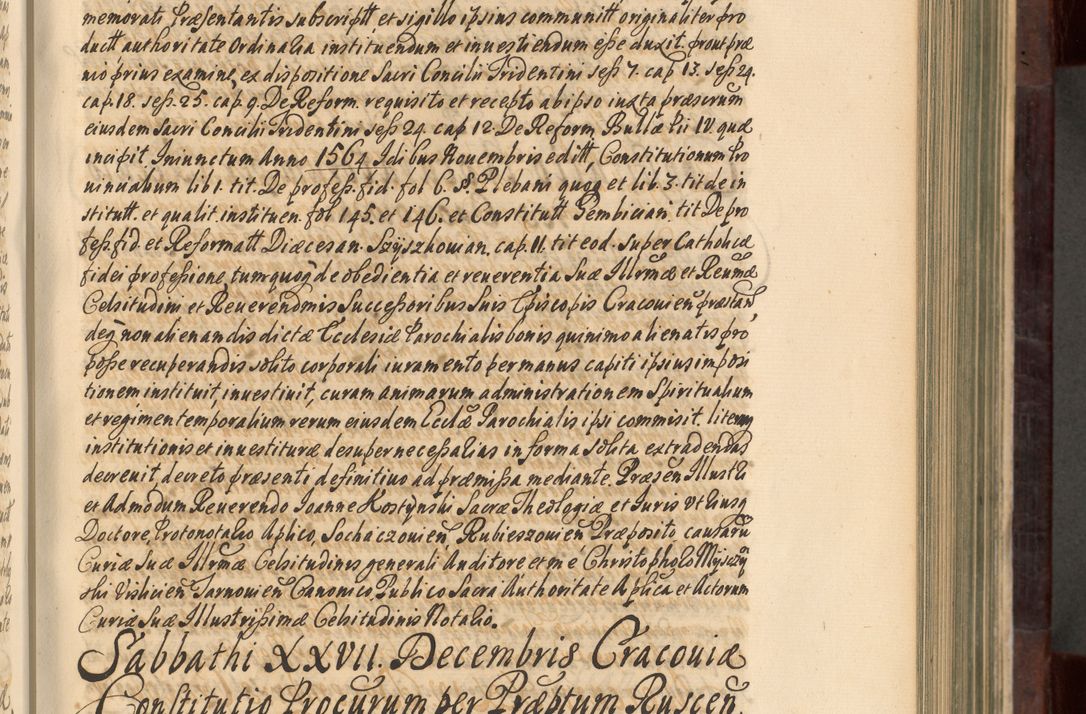 memorati Præsentantis subscriptt et sigillo ipsius communitt originaliter pro
ductt authoritate Ordinaria instituendum et inuestiendum eſse duxit. prout præ
uio prius examine, ex dispositione Sacri Concilii Tridentini seſs 7. cap 13. seſs 24.
cap. 18. seſs. 25. cap. 9. De Reform. requisito et recepto ab ipso iuxta præscrum
eiusdem Sacri Concilii Tridentini seſs 24. cap 12. De Reform. Bullæ Pii IV. quæ
incipit Iniunctum Anno 1564 Idibus Nouembris editt, Constitutionum Pro
uincialium lib 1. tit. De profeſs. fid. fol 6. §. Plebani quoq et lib. 3. tit de in
stitutt. et qualit. instituen. fol 145. et 146. et Constitutt Gembician. tit De pro
feſs. fid. et Reformatt Diæcesan. Szyszkouian. cap. 11. tit eod. super Catholicæ
fidei profeſsione, tum quoq de obedientia et reuerentia Suæ Illrmæ et Reumæ
Celsitudini et Reuerendmis Succeſsoribus Suis Episcopis Cracouien præstan
deq non alienandis dictæ Ecclesiæ Parochialis bonis quinimo alienatis pro
poſse recuperandis solito corporali iuramento per manus capiti ipsius imposi
tionem instituit, inuestiuit, curam animarum administrationem Spiritualium
et regimen temporalium rerum eiusdem Ecclæ Parochialis ipsi commisit. literasq
institutionis et inuestituræ desuper neceſsarias in forma solita extradendas
decreuit, decreto præsenti definitiuo ad præmiſsa mediante. Præsen Illustri
et Admodum Reuerendo Ioanne Kostynski Sacræ Theologiæ et Iuris Vtriusq
Doctore, Protonotario Aplico, Sochaczouien Rubieszouien Præposito, causarum
Curiæ Suæ Illrmæ Celsitudinis generali Auditore et me Christophoro Mysczyn
ski Visliciен Tarnouien Canonico, Publico Sacra Authoritate Aplica et Actorum
Curiæ Suæ Illustriſsimæ Celsitudinis Notario.
Sabbathi XXVII. Decembris Cracouiæ
Constitutio Procurum per Præptum Ruscen.